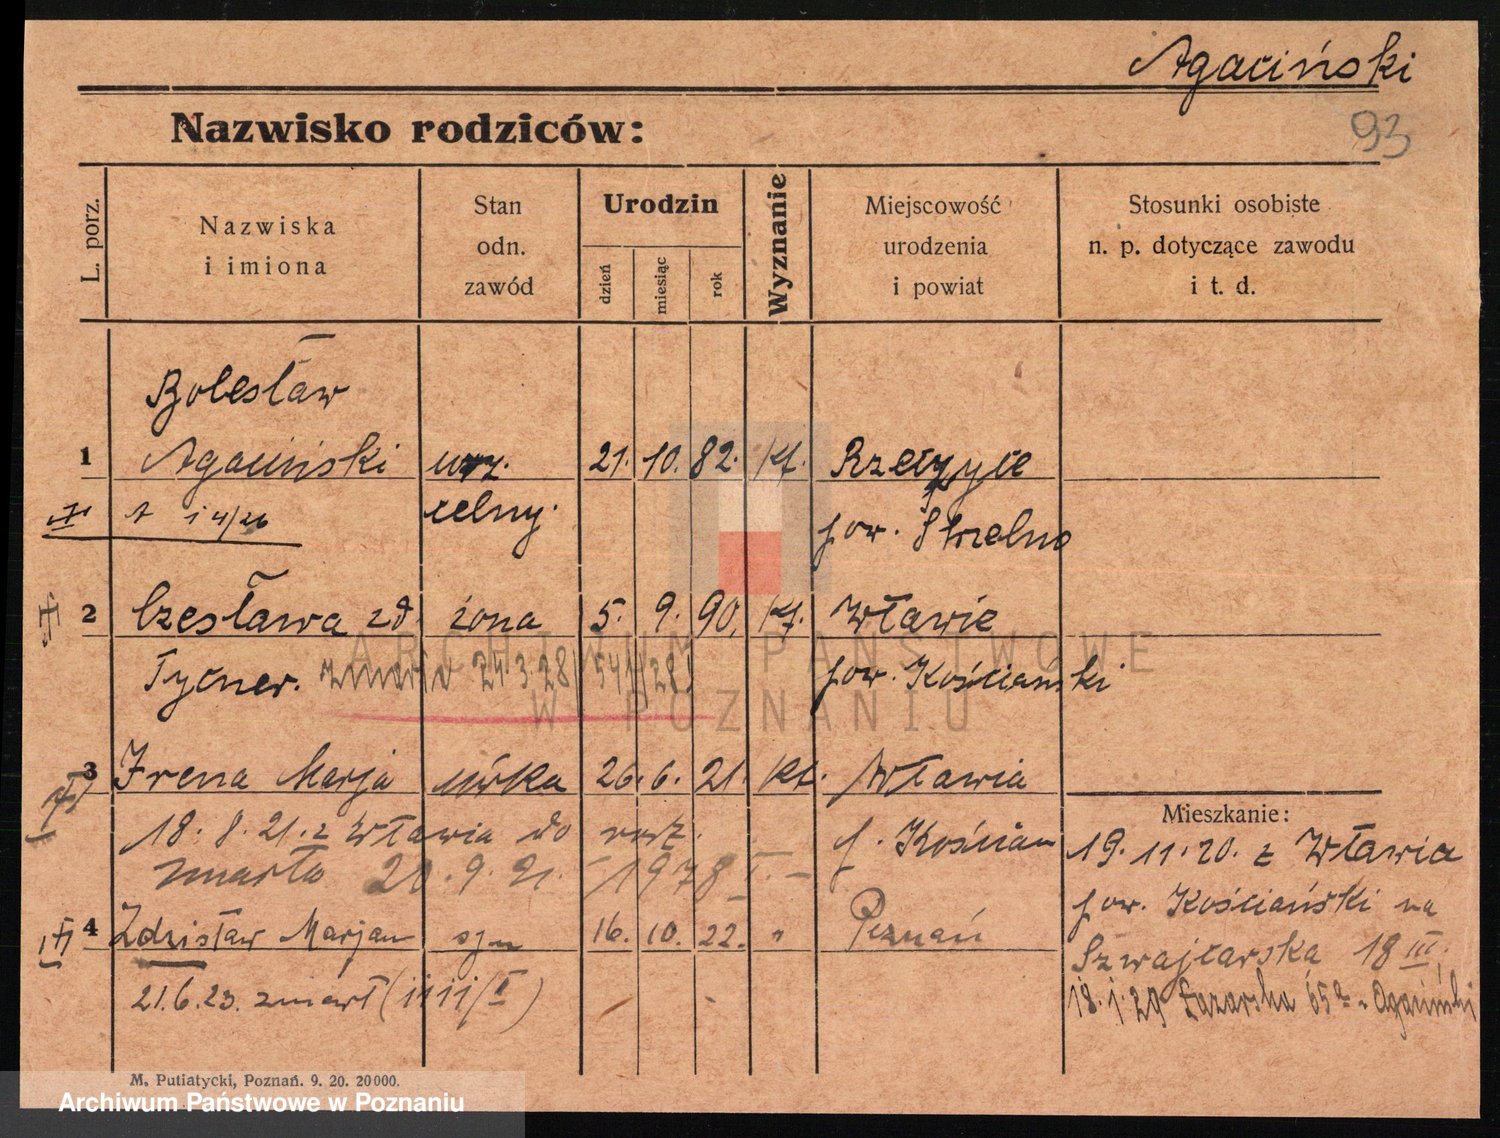 Agaciński
93
Nazwisko rodziców:
L. porz.
Nazwiska
i imiona
Stan
odn.
zawód
Urodzin
dzień
miesiąc
rok
Wyznanie
Miejscowość
urodzenia
i powiat
Stosunki osobiste
n. p. dotyczące zawodu
i t. d.
Bolesław
1 Agaciński urz. 21. 10. 82. kt.
celny.
pow. Strzelno
2 Czesława zd żona 5. 9. 90. kt. Wławie
Tycner. zmarła 24.3.28 541/28 pow. Kościański
3 Irena Marja córka 26. 6. 21. kt. Wławia
18. 8. 21. z Wławia do p. Kościan
zmarła 20. 9. 21. 1978
4 Zdzisław Marjan syn 16. 10. 22. " Poznań
21.6.23. zmarł
Mieszkanie:
19. 11. 20. z Wławia
pow. Kościański na
Szwajcarska 18 III.
18. 1. 29 Łazarska 65 Agaciński
M. Putiatycki, Poznań. 9. 20. 20000.
ARCHIWUM PAŃSTWOWE
W POZNANIU
Archiwum Państwowe w Poznaniu